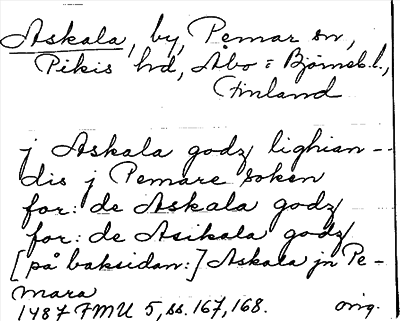 Askala, by, Pemar sn,
Pikis hd, Åbo = Björneb. l.,
Finland
j Askala godz lighian-
dis j Pemare soken
for: de Askala godz
for: de Asikala godz
[på baksidan:] Askala jn Pe-
mara
1487 FMU 5, ss. 167, 168. orig.